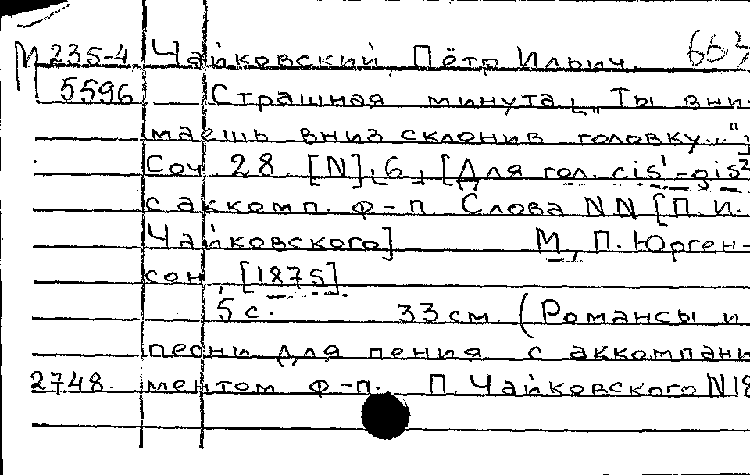 М 235-4 Чайковский, Пётр Ильич. 663
5596 Страшная минута [„Ты вни-
маешь вниз склонив головку..."]
Соч 28 [N] 6, [Для гол. cis¹-gis²
с аккомп. ф-п Слова NN [П. И.
Чайковского] М., П. Юрген-
сон, [1875]
5 с. 33 см (Романсы и
песни для пения с аккомпани
2748 ментом ф-п. П. Чайковского N18